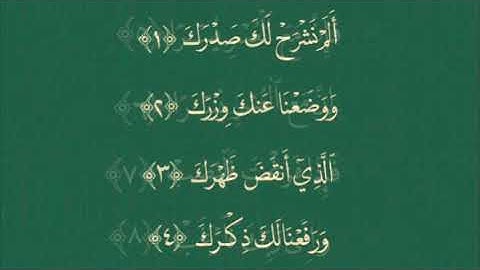 أَلَمْ نَشْرَحْ لَكَ صَدْرَكَ ﴿١﴾
وَوَضَعْنَا عَنكَ وِزْرَكَ ﴿٢﴾
الَّذِيٓ أَنقَضَ ظَهْرَكَ ﴿٣﴾
وَرَفَعْنَا لَكَ ذِكْرَكَ ﴿٤﴾